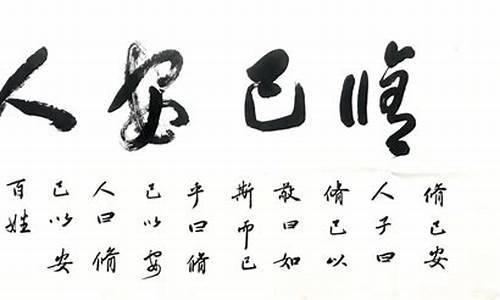 脩己安人
脩己安
人子曰
脩己以
敬曰如
斯而已
乎曰脩
己以安
人曰脩
己以安
百姓